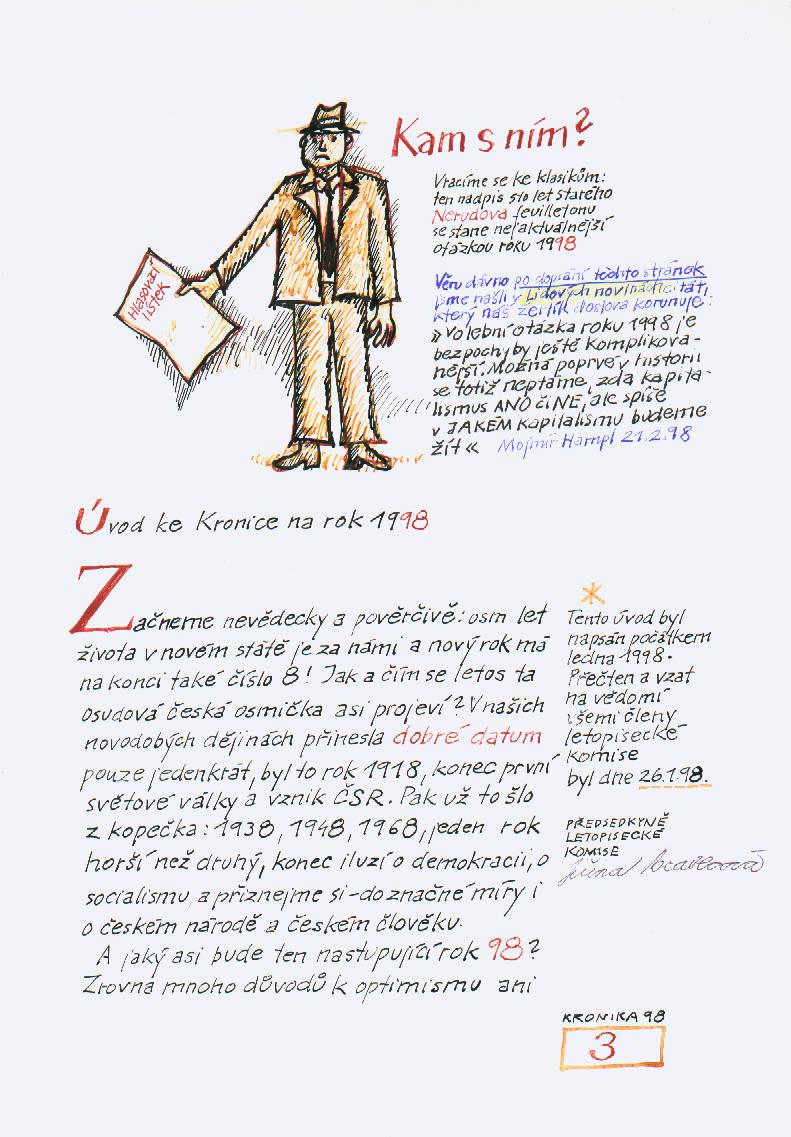 Kam s ním?
Hlasovací
lístek
Vracíme se ke klasikům:
ten nadpis sto let starého
Nerudova feuilletonu
se stane nejaktuálnější
otázkou roku 1998
Věru dávno po dopsání těchto stránek
jsme našli v Lidových novinách citát,
který náš žertík doslova korunuje:
»Volební otázka roku 1998 je
bezpochyby ještě komplikova-
nější. Možná poprvé v historii
se totiž neptáme, zda kapita-
lismus ANO či NE, ale spíše
v JAKÉM kapitalismu budeme
žít« Mojmír Hampl 21.2.98
Úvod ke Kronice na rok 1998
Začneme nevědecky a pověrčivě: osm let
života v novém státě je za námi a nový rok má
na konci také číslo 8! Jak a čím se letos ta
osudová česká osmička asi projeví? V našich
novodobých dějinách přinesla dobré datum
pouze jedenkrát, byl to rok 1918, konec první
světové války a vznik ČSR. Pak už to šlo
z kopečka: 1938, 1948, 1968, jeden rok
horší než druhý, konec iluzí o demokracii, o
socialismu, a přiznejme si - do značné míry i
o českém národě a českém člověku.
A jaký asi bude ten nastupující rok 98?
Zrovna mnoho důvodů k optimismu ani
*
Tento úvod byl
napsán počátkem
ledna 1998.
Přečten a vzat
na vědomí
všemi členy
letopisecké
komise
byl dne 26.1.98.
PŘEDSEDKYNĚ
LETOPISECKÉ
KOMISE
KRONIKA 98
3